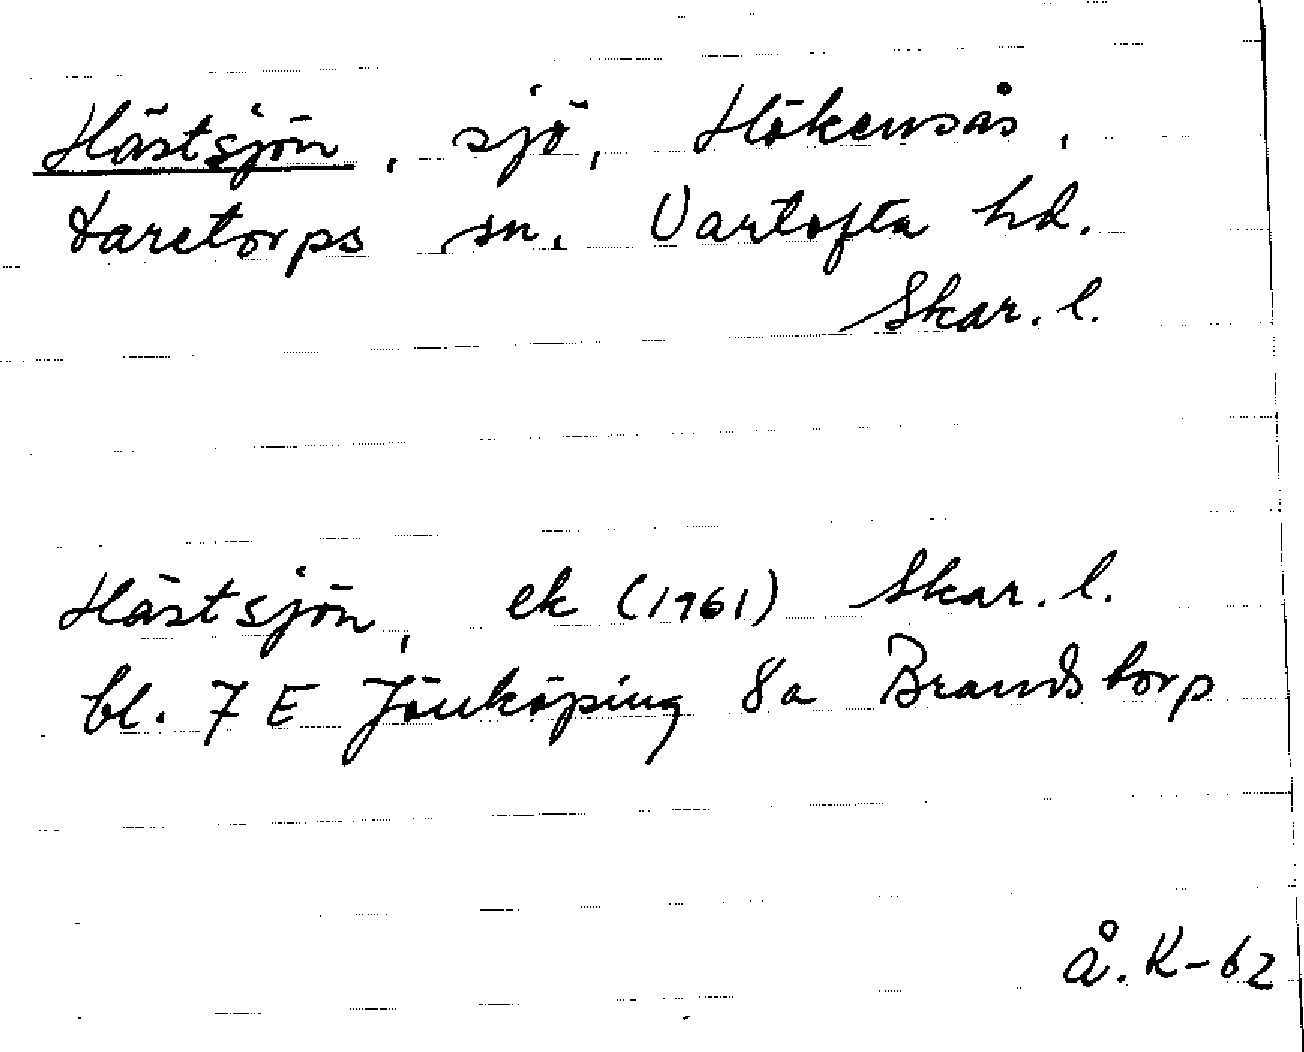 Hästsjön, sjö, Hökensås,
Daretorps sn. Vartofta hd.
Skar. l.
Hästsjön, ek (1961) Skar. l.
bl. 7 E Jönköping 8a Brandstorp
Å. K-62